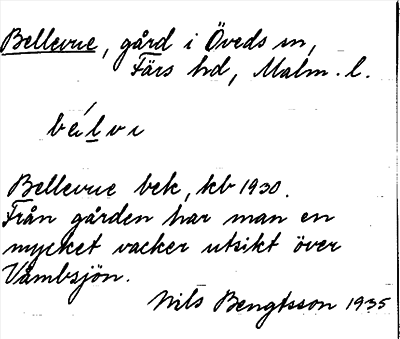 Bellevue, gård i Öveds sn,
Färs hd, Malm. l.
béilvi
Bellevue bek, kb 1930.
Från gården har man en
mycket vacker utsikt över
Vombsjön.
Nils Bengtsson 1935